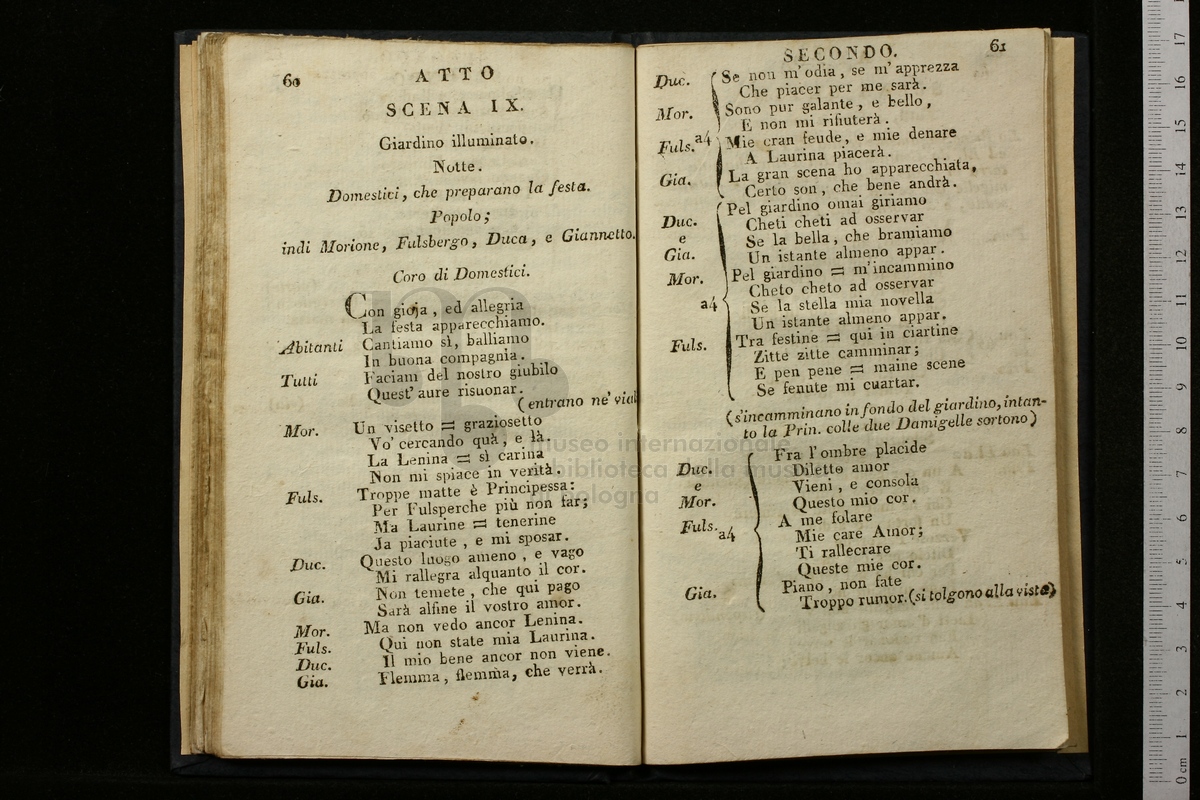 60
ATTO
SCENA IX.
Giardino illuminato.
Notte.
Domestici, che preparano la festa.
Popolo;
indi Morione, Fulsbergo, Duca, e Giannetto.
Coro di Domestici.
Con gioja, ed allegria
La festa apparecchiamo.
Abitanti Cantiamo sì, balliamo
In buona compagnia.
Tutti Faciam del nostro giubilo
Quest' aure risuonar.
(entrano ne' vial
Mor. Un visetto = graziosetto
Vo' cercando quà, e là.
La Lenina = sì carina
Non mi spiace in verità.
Fuls. Troppe matte è Principessa:
Per Fulsperche più non far;
Ma Laurine = tenerine
Ja piaciute, e mi sposar.
Duc. Questo luogo ameno, e vago
Mi rallegra alquanto il cor.
Gia. Non temete, che qui pago
Sarà alfine il vostro amor.
Mor. Ma non vedo ancor Lenina.
Fuls. Qui non state mia Laurina.
Duc. Il mio bene ancor non viene.
Gia. Flemma, flemma, che verrà.
SECONDO.
61
Duc. Se non m'odia, se m'apprezza
Che piacer per me sarà.
Mor. Sono pur galante, e bello,
E non mi rifiuterà.
Fuls. a4 Mie cran feude, e mie denare
A Laurina piacerà.
Gia. La gran scena ho apparecchiata,
Certo son, che bene andrà.
Duc. e Gia. Pel giardino omai giriamo
Cheti cheti ad osservar
Se la bella, che bramiamo
Un istante almeno appar.
Mor. Pel giardino = m'incammino
Cheto cheto ad osservar
a4 Se la stella mia novella
Un istante almeno appar.
Fuls. Tra festine = qui in ciartine
Zitte zitte camminar;
E pen pene = maine scene
Se fenute mi cuartar.
(s'incamminano in fondo del giardino, intan-
to la Prin. colle due Damigelle sortono)
Duc. e Mor. Fra l'ombre placide
Diletto amor
Vieni, e consola
Questo mio cor.
Fuls. a4 A me folare
Mie care Amor;
Ti rallecrare
Queste mie cor.
Gia. Piano, non fate
Troppo rumor. (si tolgono alla vista)
museo internazionale
biblioteca della musica
bologna
0 cm 1 2 3 4 5 6 7 8 9 10 11 12 13 14 15 16 17